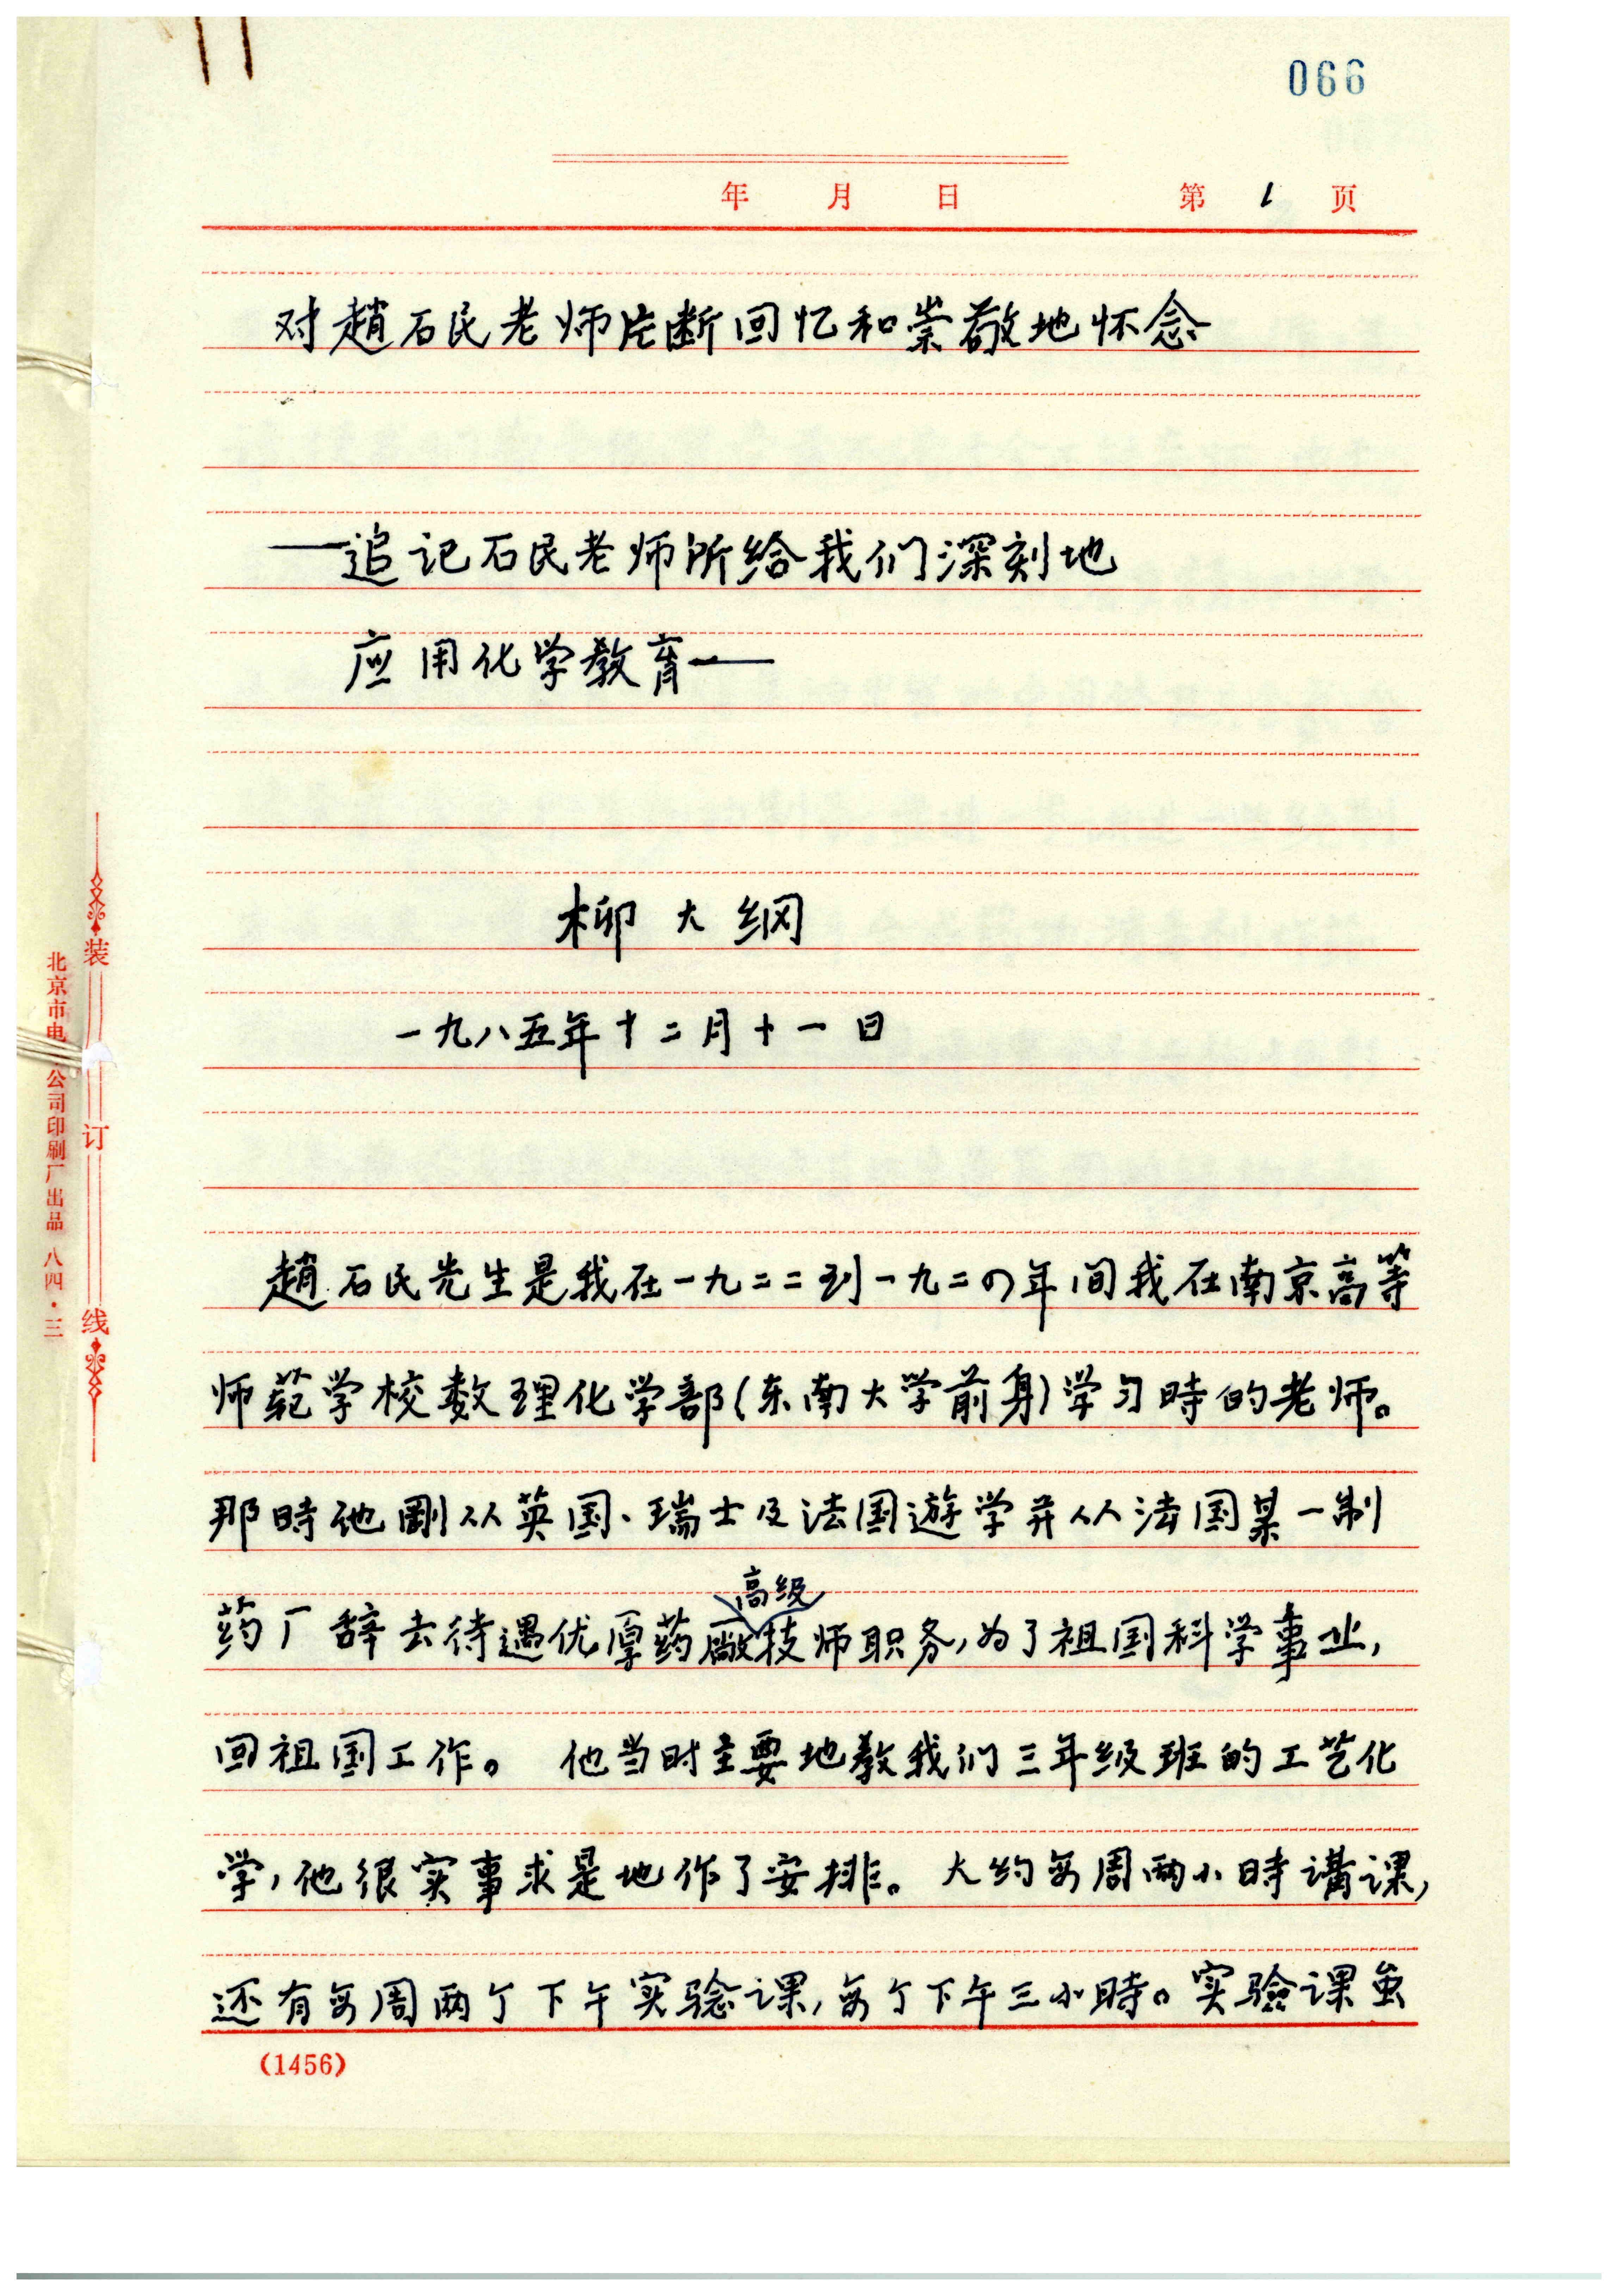 066
年 月 日 第 1 页
对趙石民老师片断回忆和崇敬地怀念
——追记石民老师所给我们深刻地
应用化学教育——
柳大纲
一九八五年十二月十一日
趙石民先生是我在一九二二到一九二四年间我在南京高等
师范学校数理化学部(东南大学前身)学习時的老师。
那時他剛从英国、瑞士及法国遊学并从法国某一制
高级
药厂辞去待遇优厚药廠技师职务,为了祖国科学事业,
回祖国工作。 他当时主要地教我们三年级班的工艺化
学,他很实事求是地作了安排。大约每周两小時講课,
还有每周两个下午实验课,每个下午三小時。实驗课虽
(1456)
装
订
线
北京市电 公司印刷厂出品 八四·三